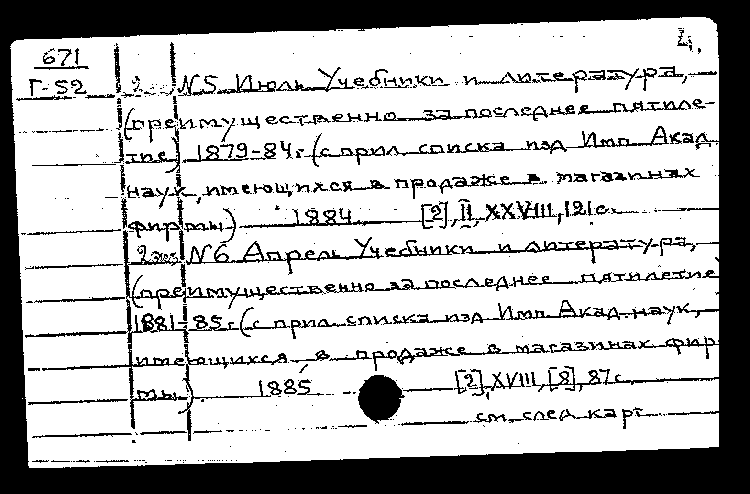 4.
671
Г-52 2 №5 Июль Учебники и литература,
(преимущественно за последнее пятиле-
тие) 1879-84г. (с прил. списка изд Имп. Акад
наук, имеющихся в продаже в магазинах
фирмы) 1884 [2], II, XXVIII, 121 с.
2 экз №6 Апрель Учебники и литература,
(преимущественно за последнее пятилетие
1881-85г. (с прил. списка изд Имп Акад. наук,
имеющихся в продаже в магазинах фир
мы). 1885 [2], XVIII, [8], 87 с.
см. след карт